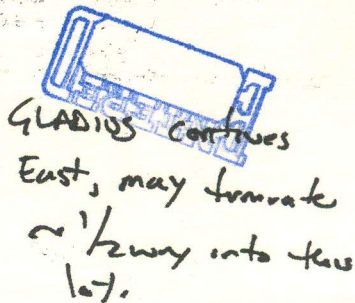 GLADIUS continues
East, may truncate
~ 1/2 way into this
lot.